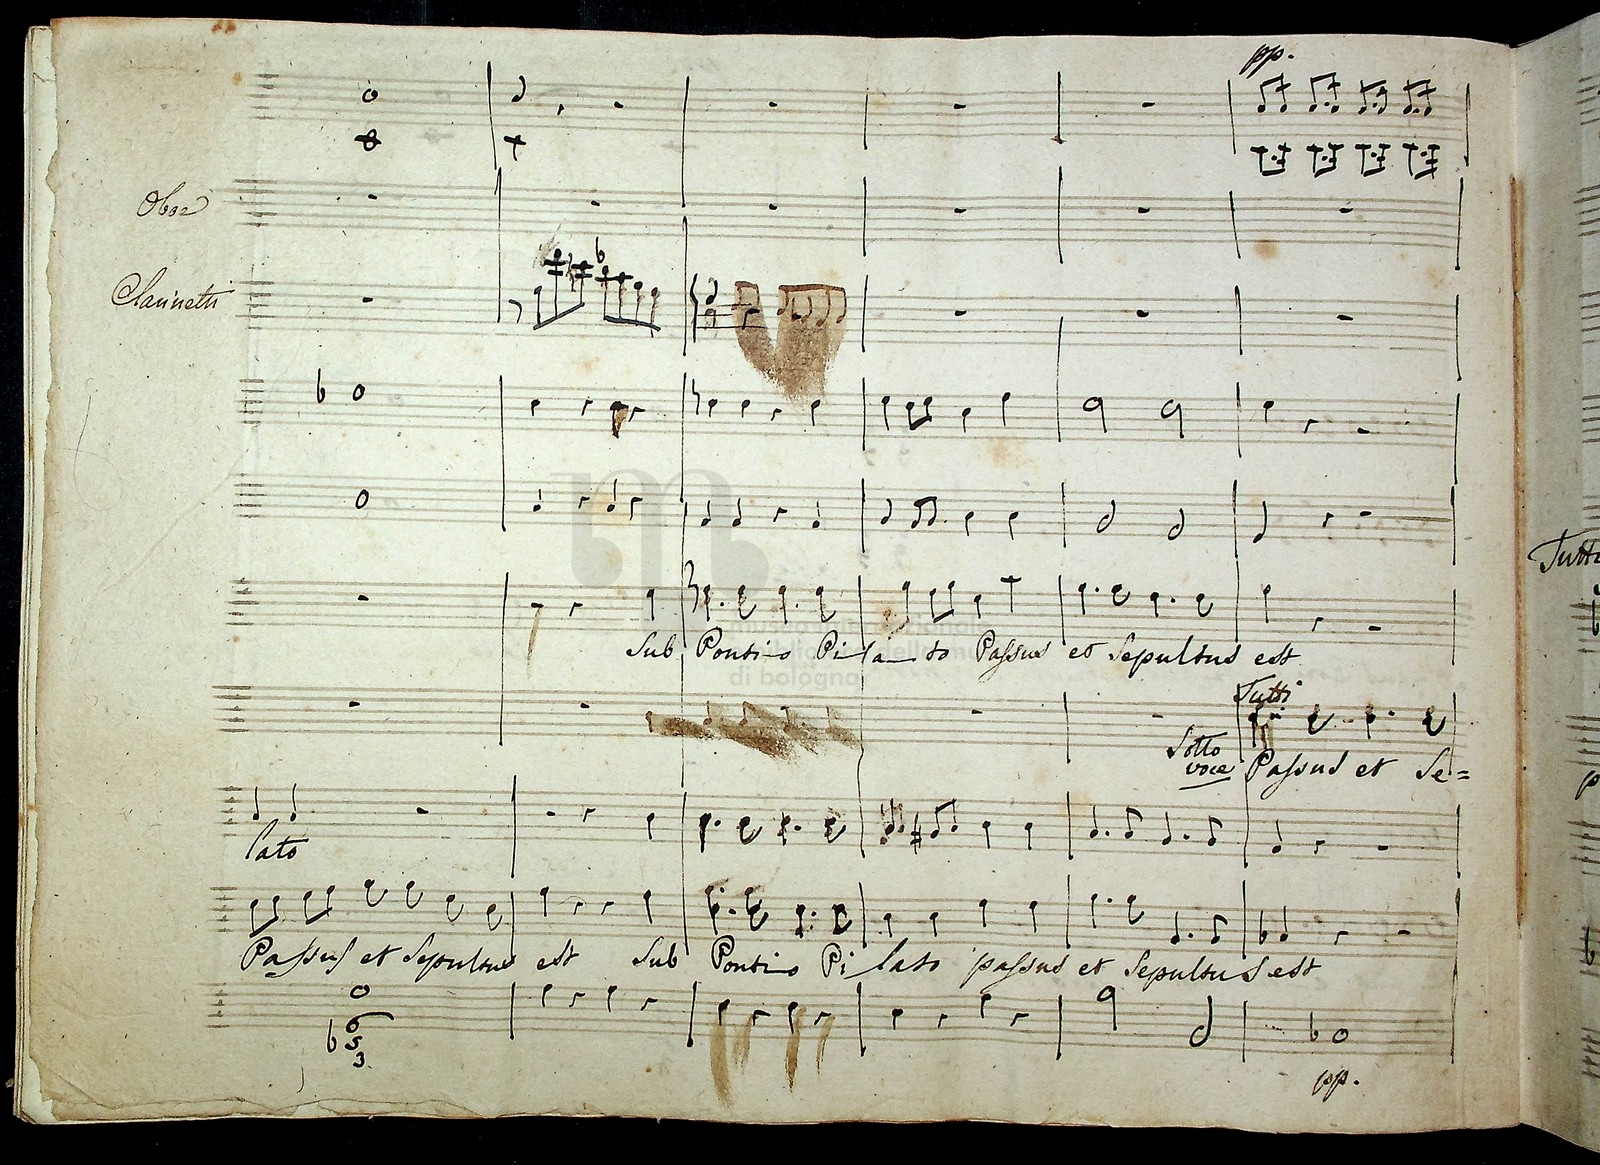 pp.
Oboe
Clarinetti
Tutti
Sub Pontio Pi la to Passus et Sepultus est
di bologna
Tutti
Sotto voce Passus et Se=
lato
Passus et Sepultus est Sub Pontio Pi lato passus et Sepultus est
6
5
3
pp.